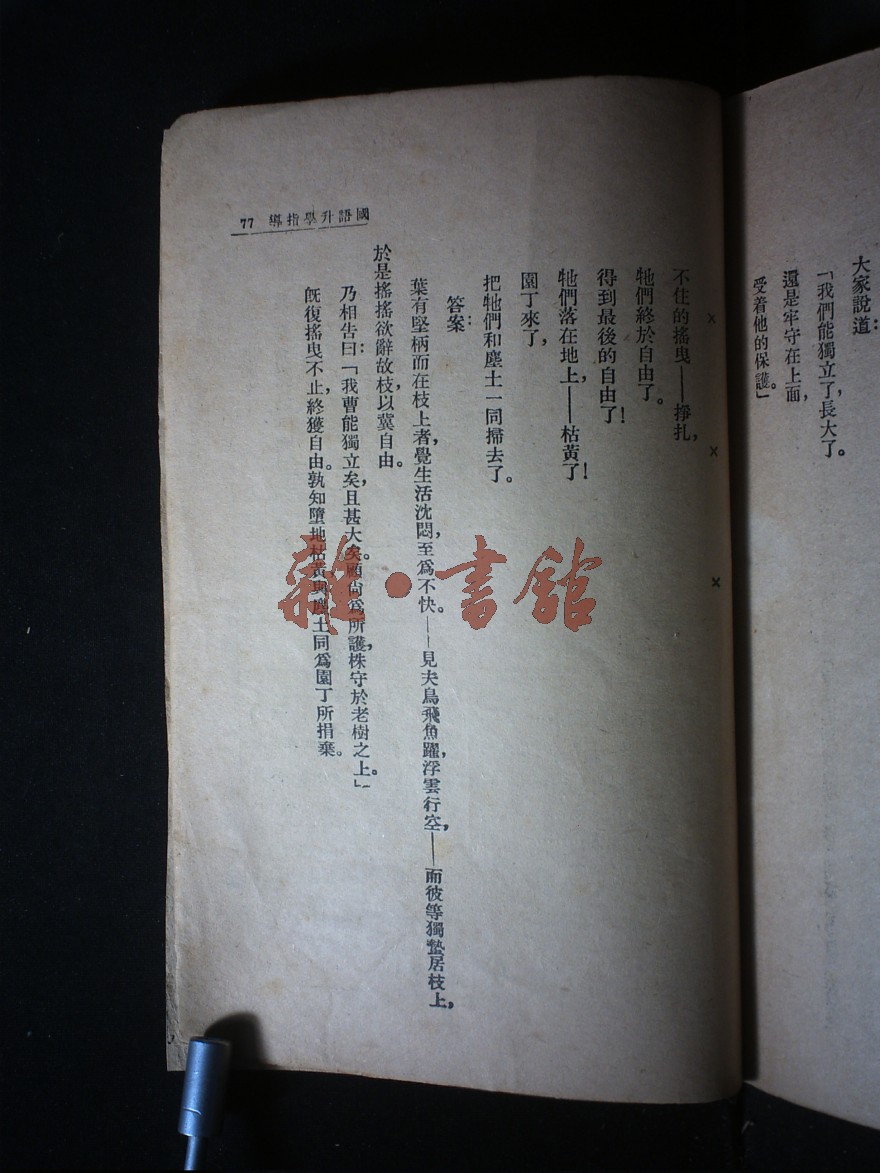 大家說道：
「我們能獨立了，長大了。
還是牢守在上面，
受着他的保護。」
不住的搖曳——掙扎，
牠們終於自由了。
得到最後的自由了！
牠們落在地上，——枯黃了！
園丁來了，
把牠們和塵土一同掃去了。
答案：
葉有堅柄而在枝上者，覺生活沈悶，至爲不快。——見夫鳥飛魚躍，浮雲行空，——而彼等獨蟄居枝上，
於是搖搖欲辭故枝，以冀自由。
乃相告曰：「我曹能獨立矣，且甚大矣。顧尙爲所護，株守於老樹之上。」
旣復搖曳不止，終獲自由。孰知墮地枯黃，與塵土同爲園丁所捐棄。
國語升學指導 77
雜·書館